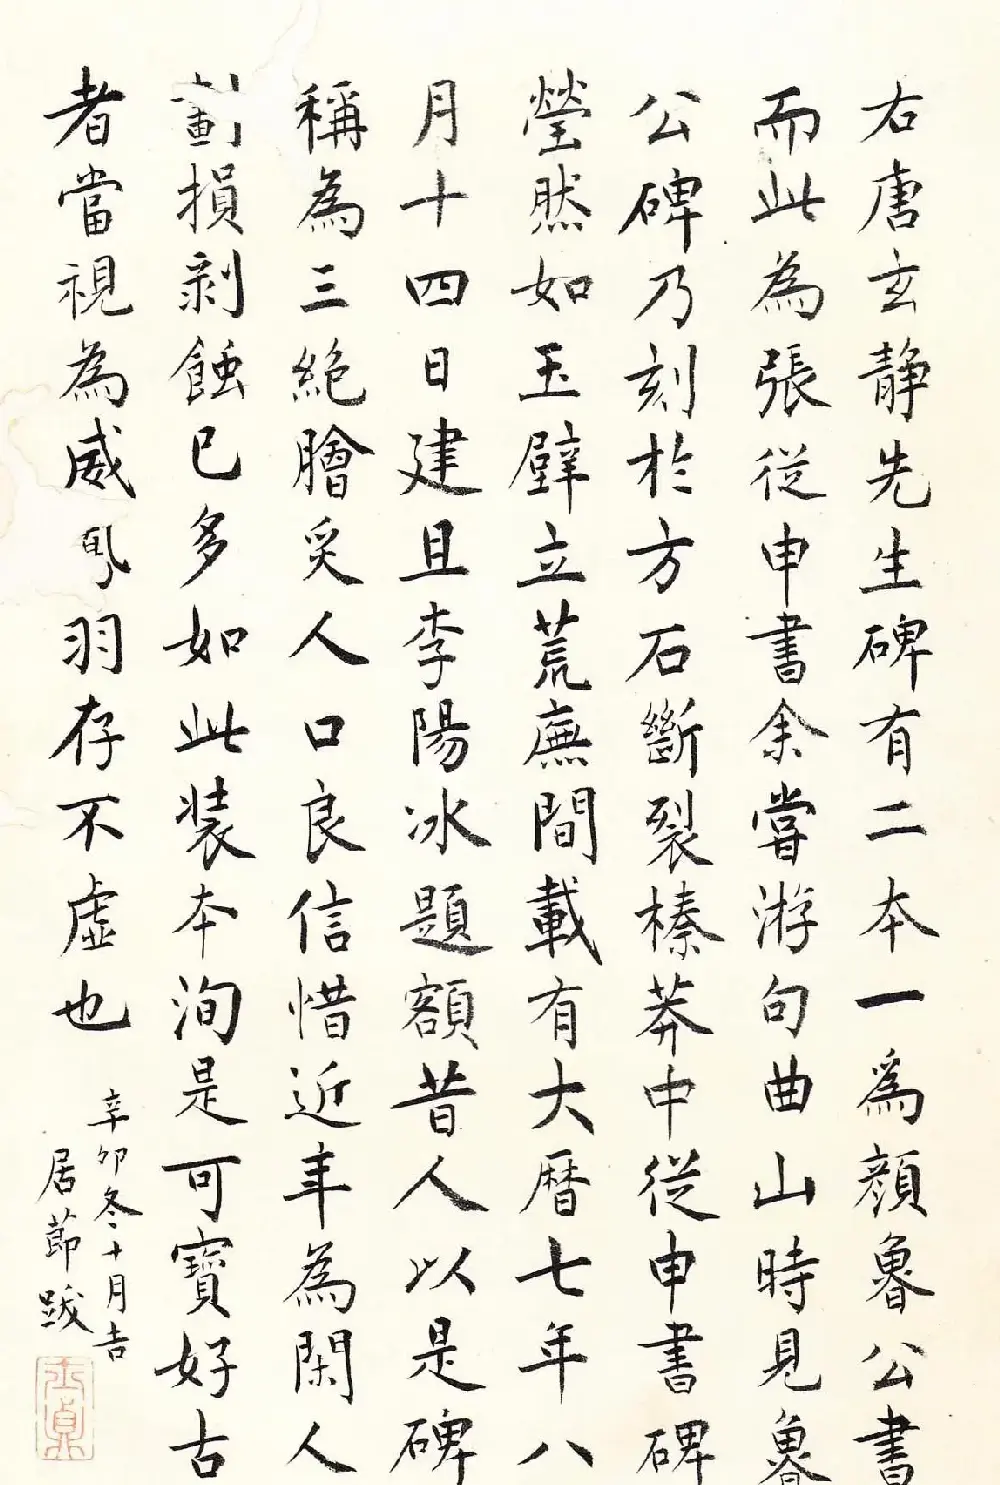 右唐玄靜先生碑有二本一爲顔魯公書
而此為張從申書余嘗游句曲山時見魯
公碑乃刻於方石斷裂榛莽中從申書碑
瑩然如玉壁立荒廡間載有大曆七年八
月十四日建且李陽冰題額昔人以是碑
稱為三絶膾炙人口良信惜近年為閑人
劃損剥蝕已多如此装本洵是可寶好古
者當視為威鳳羽存不虛也
辛卯冬十月吉
居節跋
士貞